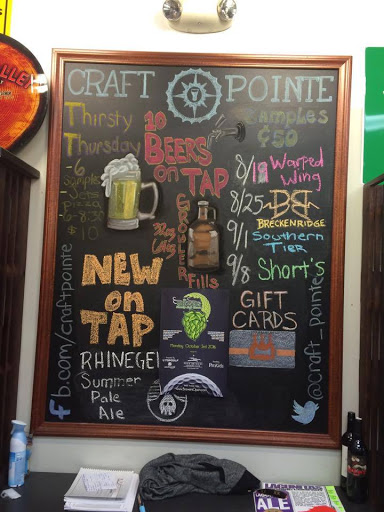 CRAFT POINTE
Thirsty
Thursday
-6
Samples
Jets
Pizza
6-8:30
$10
10
BEERS
on TAP
GROWLER
Fills
Samples
¢50
8/18 Warped
Wing
8/25
BRECKENRIDGE
9/1 Southern
Tier
9/8 Short's
NEW
on
TAP
RHINEGEI
Summer
Pale
Ale
Monday, October 3rd 2016
GIFT
CARDS
fb.com/craftpointe
@craft_pointe
ALE